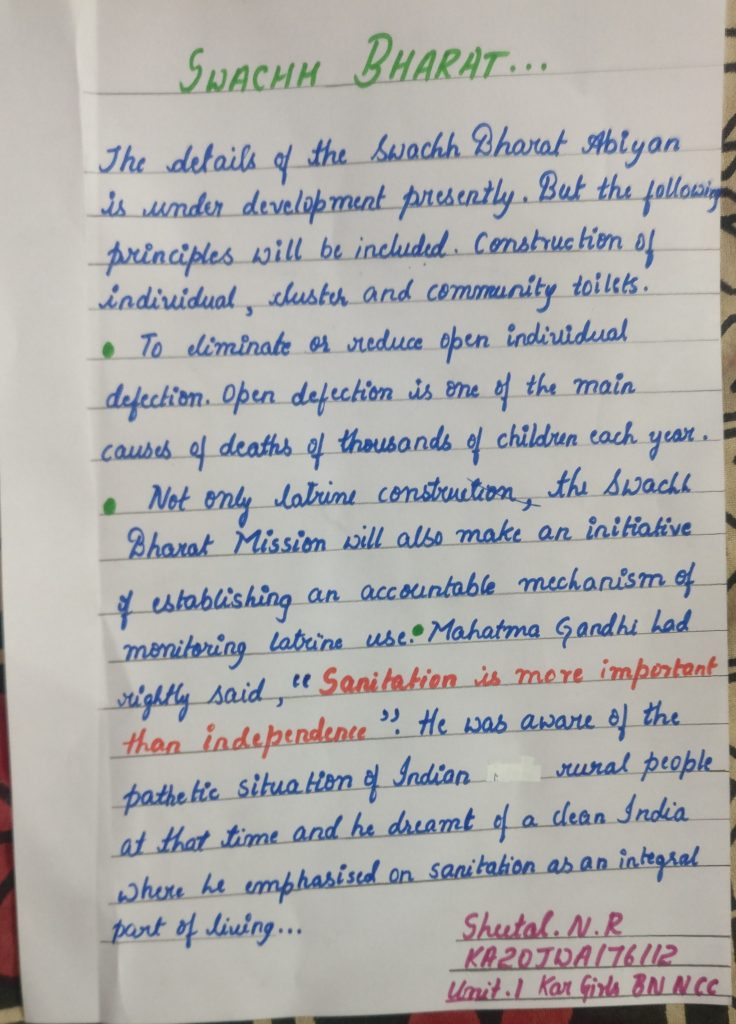 SWACHH BHARAT...
The details of the Swachh Bharat Abiyan
is under development presently. But the following
principles will be included. Construction of
individual, cluster and community toilets.
• To eliminate or reduce open individual
defection. Open defection is one of the main
causes of deaths of thousands of children each year.
• Not only latrine construction, the Swachh
Bharat Mission will also make an initiative
of establishing an accountable mechanism of
monitoring latrine use. • Mahatma Gandhi had
rightly said, "Sanitation is more important
than independence". He was aware of the
pathetic situation of Indian rural people
at that time and he dreamt of a clean India
where he emphasised on sanitation as an integral
part of living...
Sheetal. N. R
KA20JWA176112
Unit. 1 Kar Girls BN NCC